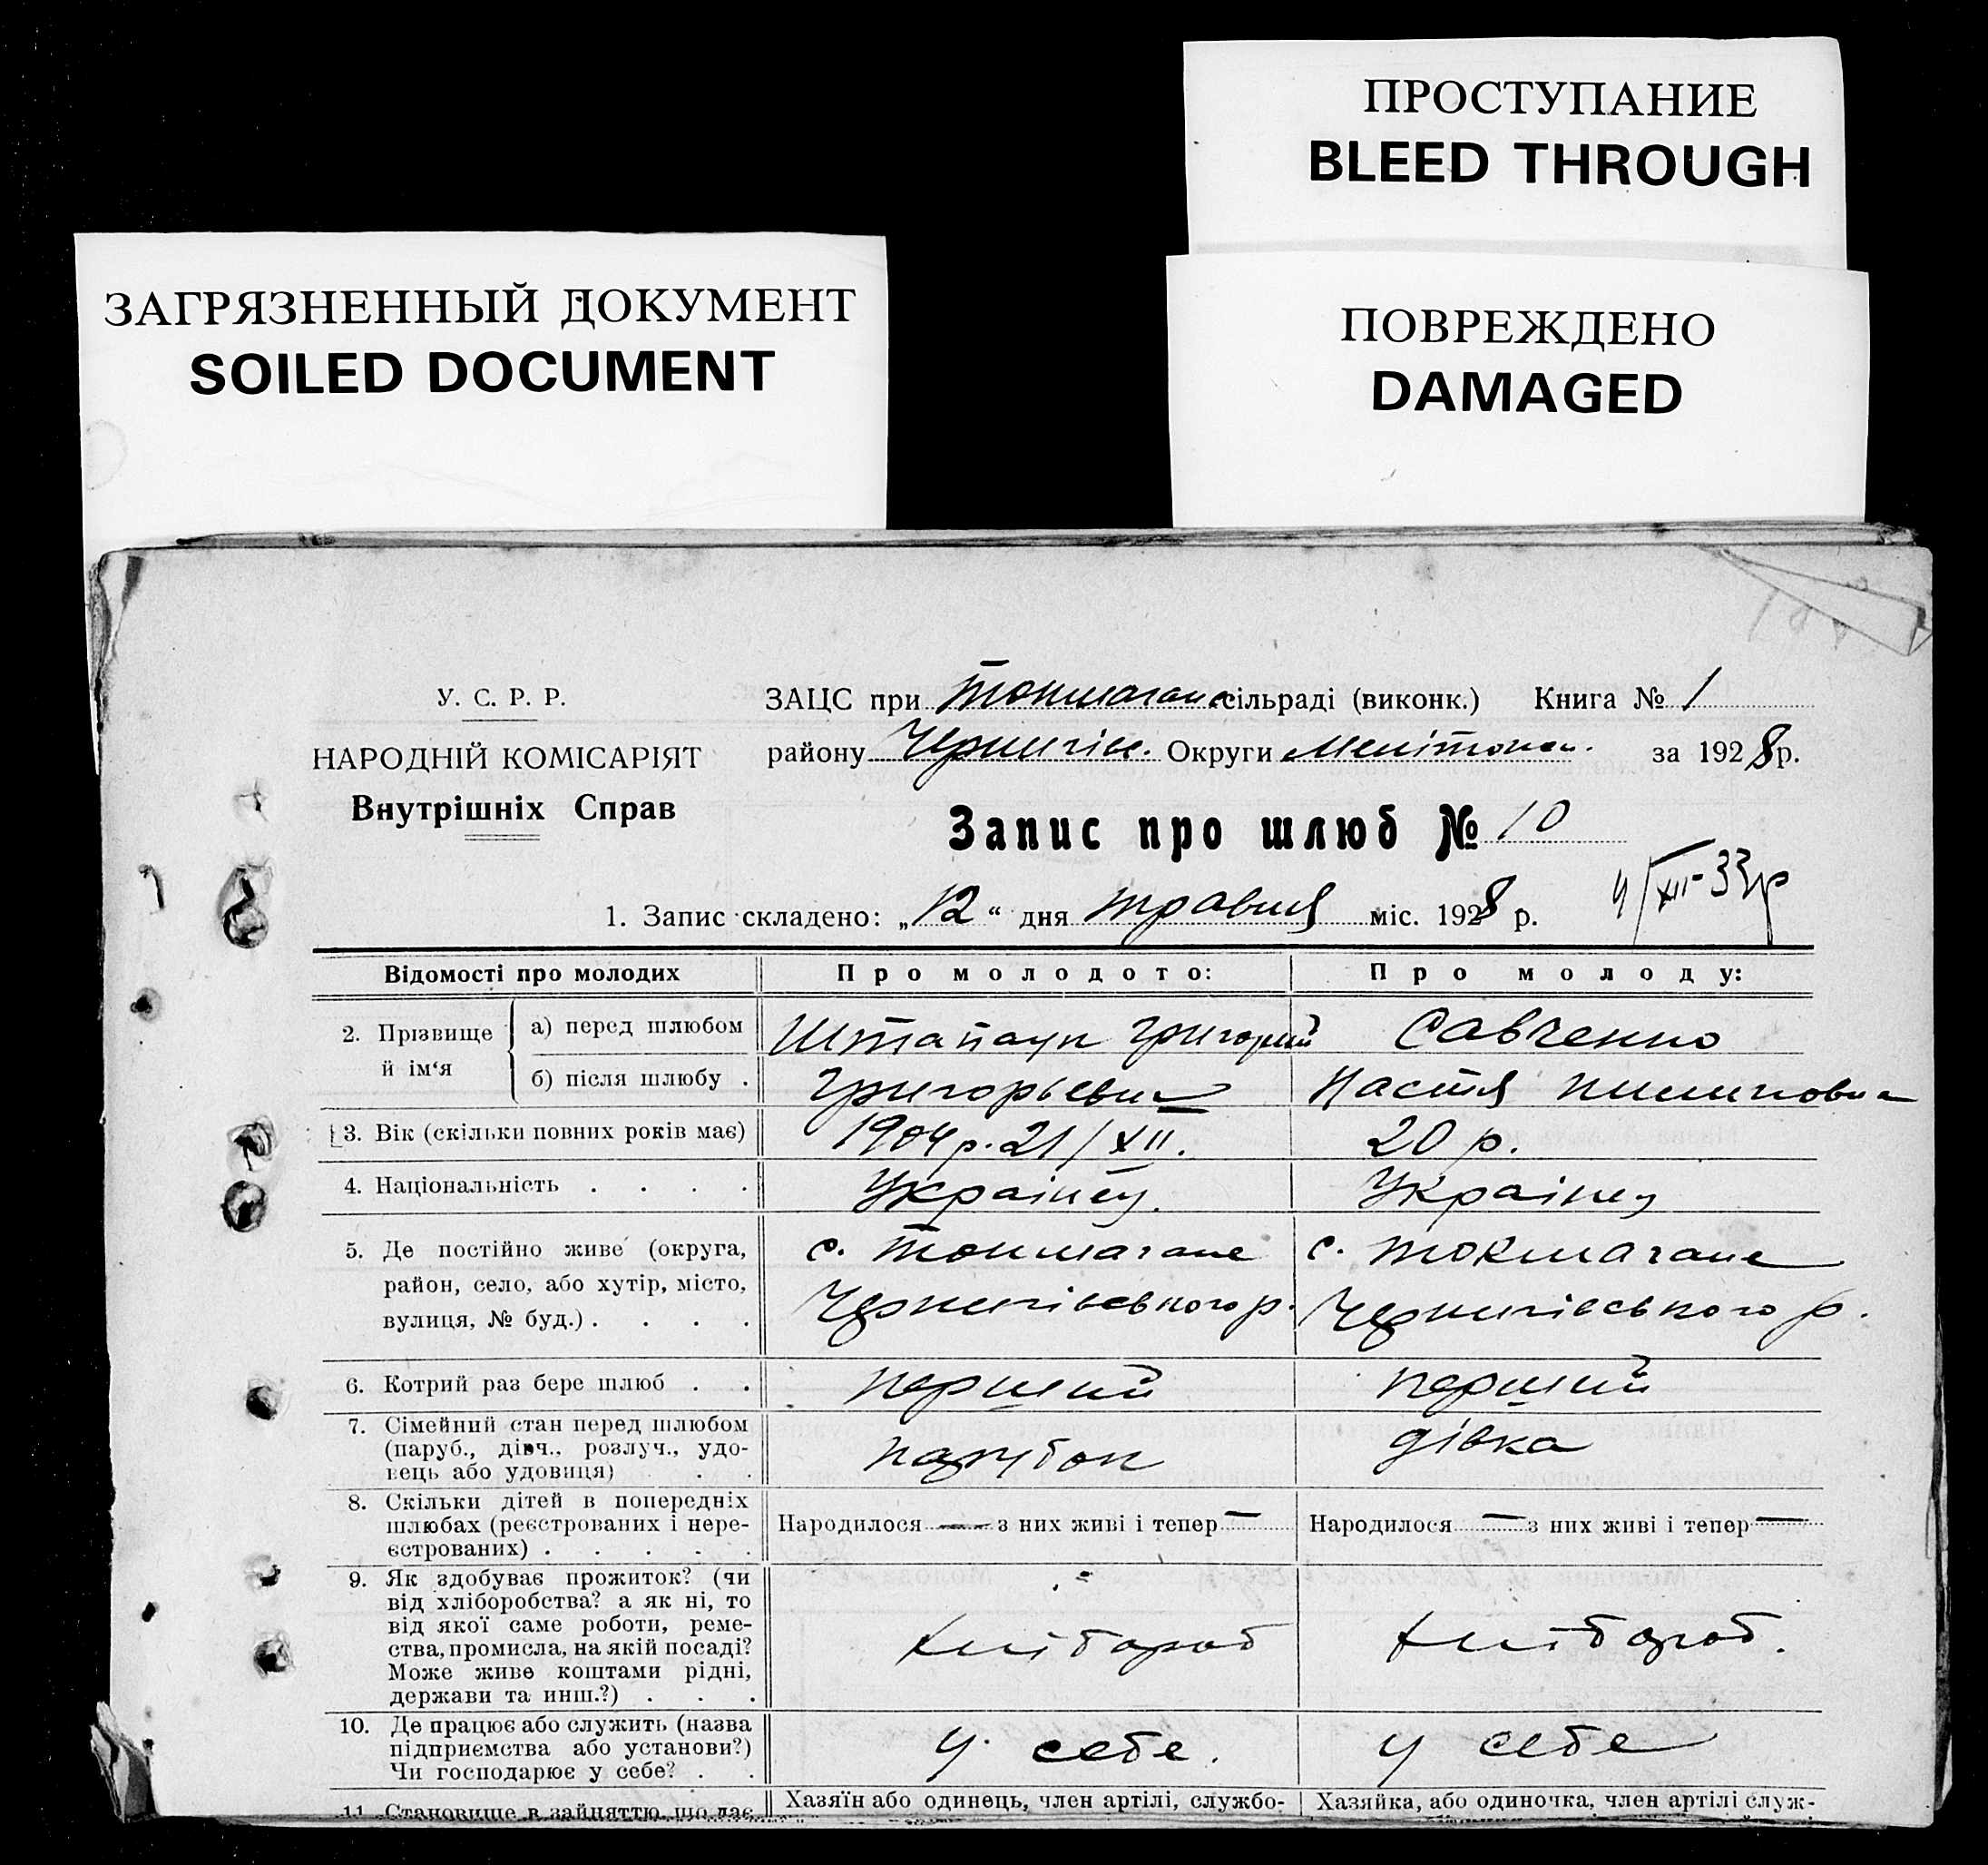 ПРОСТУПАНИЕ
BLEED THROUGH
ЗАГРЯЗНЕННЫЙ ДОКУМЕНТ
SOILED DOCUMENT
ПОВРЕЖДЕНО
DAMAGED
У. С. Р. Р.
НАРОДНІЙ КОМІСАРІЯТ
Внутрішніх Справ
ЗАЦС при Токмачан сільраді (виконк.) Книга № 1
району Чернигів. Округи Мелітопол. за 1928 р.
Запис про шлюб № 10
1. Запис складено: „12“ дня травня міс. 1928 р.
4/XII-33 р
Відомості про молодих Про молодого: Про молоду:
2. Прізвище й ім‘я а) перед шлюбом Григорий Савченко
б) після шлюбу . Григорьевич Настя Пилиповна
3. Вік (скільки повних років має) 1904 р. 21/XII. 20 р.
4. Національність . . . . Українец. Українец
5. Де постійно живе (округа, район, село, або хутір, місто, вулиця, № буд.) . . . .
с. Токмачане Чернигівського р.
с. Токмачане Чернигівського р.
6. Котрий раз бере шлюб . . перший перший
7. Сімейний стан перед шлюбом (паруб., дівч., розлуч., удовець або удовиця) . .
парубок дівка
8. Скільки дітей в попередніх шлюбах (реєстрованих і нереєстрованих) . . . . .
Народилося — з них живі і тепер —
Народилося — з них живі і тепер —
9. Як здобуває прожиток? (чи від хліборобства? а як ні, то від якої саме роботи, ремества, промисла, на якій посаді? Може живе коштами рідні, держави та инш.?) . . .
хлібороб хлібороб.
10. Де працює або служить (назва підприємства або установи?) Чи господарює у себе? . .
у себе. у себе
11. Становище в зайняттю, що дає
Хазяїн або одинець, член артілі, службо-
Хазяйка, або одиночка, член артілі служ-